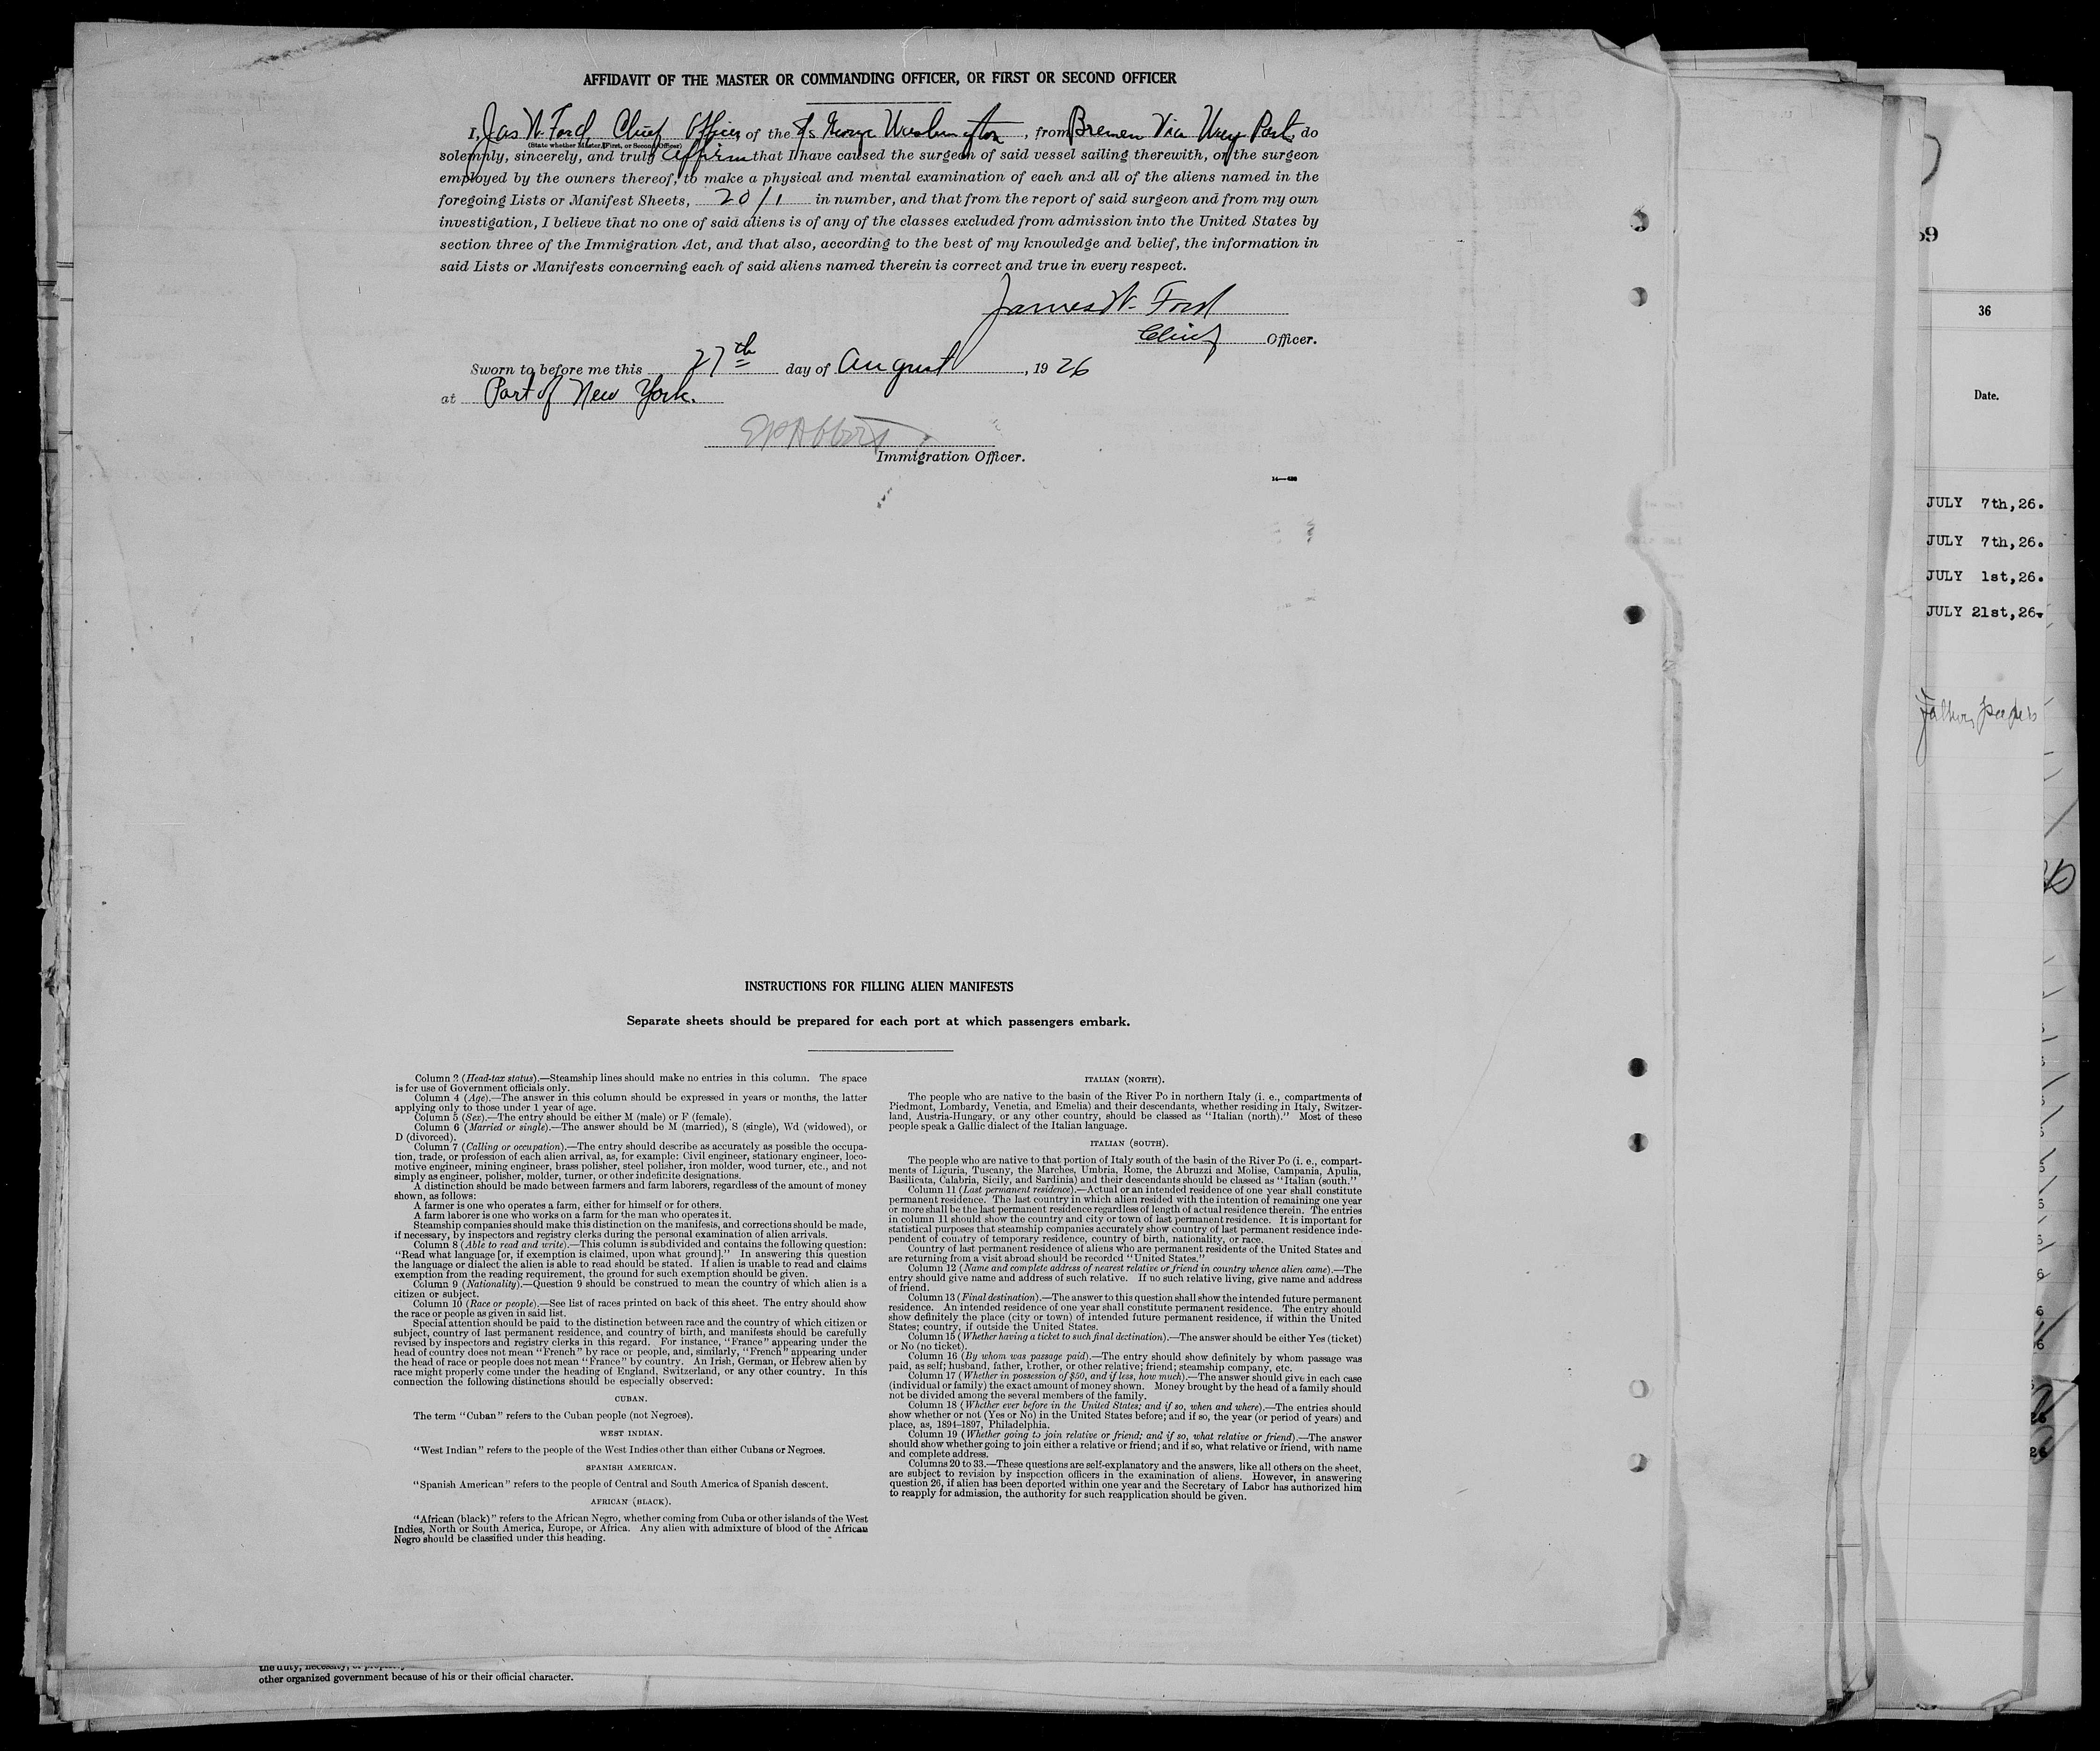 AFFIDAVIT OF THE MASTER OR COMMANDING OFFICER, OR FIRST OR SECOND OFFICER
I, Jas W. Ford, Chief Officer, of the SS George Washington, from Bremen Via Way Ports, do
(State whether Master, First, or Second Officer)
solemnly, sincerely, and truly affirm that I have caused the surgeon of said vessel sailing therewith, or the surgeon
employed by the owners thereof, to make a physical and mental examination of each and all of the aliens named in the
foregoing Lists or Manifest Sheets, 20/1 in number, and that from the report of said surgeon and from my own
investigation, I believe that no one of said aliens is of any of the classes excluded from admission into the United States by
section three of the Immigration Act, and that also, according to the best of my knowledge and belief, the information in
said Lists or Manifests concerning each of said aliens named therein is correct and true in every respect.
James W. Ford
Chief Officer.
Sworn to before me this 27th day of August, 1926
at Port of New York.
Immigration Officer.
INSTRUCTIONS FOR FILLING ALIEN MANIFESTS
Separate sheets should be prepared for each port at which passengers embark.
Column 2 (Head-tax status).—Steamship lines should make no entries in this column. The space
is for use of Government officials only.
Column 4 (Age).—The answer in this column should be expressed in years or months, the latter
applying only to those under 1 year of age.
Column 5 (Sex).—The entry should be either M (male) or F (female).
Column 6 (Married or single).—The answer should be M (married), S (single), Wd (widowed), or
D (divorced).
Column 7 (Calling or occupation).—The entry should describe as accurately as possible the occupa-
tion, trade, or profession of each alien arrival, as, for example: Civil engineer, stationary engineer, loco-
motive engineer, mining engineer, brass polisher, steel polisher, iron molder, wood turner, etc., and not
simply as engineer, polisher, molder, turner, or other indefinite designations.
A distinction should be made between farmers and farm laborers, regardless of the amount of money
shown, as follows:
A farmer is one who operates a farm, either for himself or for others.
A farm laborer is one who works on a farm for the man who operates it.
Steamship companies should make this distinction on the manifests, and corrections should be made,
if necessary, by inspectors and registry clerks during the personal examination of alien arrivals.
Column 8 (Able to read and write).—This column is subdivided and contains the following question:
"Read what language [or, if exemption is claimed, upon what ground]." In answering this question
the language or dialect the alien is able to read should be stated. If alien is unable to read and claims
exemption from the reading requirement, the ground for such exemption should be given.
Column 9 (Nationality).—Question 9 should be construed to mean the country of which alien is a
citizen or subject.
Column 10 (Race or people).—See list of races printed on back of this sheet. The entry should show
the race or people as given in said list.
Special attention should be paid to the distinction between race and the country of which citizen or
subject, country of last permanent residence, and country of birth, and manifests should be carefully
revised by inspectors and registry clerks in this regard. For instance, "France" appearing under the
head of country does not mean "French" by race or people, and, similarly, "French" appearing under
the head of race or people does not mean "France" by country. An Irish, German, or Hebrew alien by
race might properly come under the heading of England, Switzerland, or any other country. In this
connection the following distinctions should be especially observed:
CUBAN.
The term "Cuban" refers to the Cuban people (not Negroes).
WEST INDIAN.
"West Indian" refers to the people of the West Indies other than either Cubans or Negroes.
SPANISH AMERICAN.
"Spanish American" refers to the people of Central and South America of Spanish descent.
AFRICAN (BLACK).
"African (black)" refers to the African Negro, whether coming from Cuba or other islands of the West
Indies, North or South America, Europe, or Africa. Any alien with admixture of blood of the African
Negro should be classified under this heading.
ITALIAN (NORTH).
The people who are native to the basin of the River Po in northern Italy (i. e., compartments of
Piedmont, Lombardy, Venetia, and Emelia) and their descendants, whether residing in Italy, Switzer-
land, Austria-Hungary, or any other country, should be classed as "Italian (north)." Most of these
people speak a Gallic dialect of the Italian language.
ITALIAN (SOUTH).
The people who are native to that portion of Italy south of the basin of the River Po (i. e., compart-
ments of Liguria, Tuscany, the Marches, Umbria, Rome, the Abruzzi and Molise, Campania, Apulia,
Basilicata, Calabria, Sicily, and Sardinia) and their descendants should be classed as "Italian (south."
Column 11 (Last permanent residence).—Actual or an intended residence of one year shall constitute
permanent residence. The last country in which alien resided with the intention of remaining one year
or more shall be the last permanent residence regardless of length of actual residence therein. The entries
in column 11 should show the country and city or town of last permanent residence. It is important for
statistical purposes that steamship companies accurately show country of last permanent residence inde-
pendent of country of temporary residence, country of birth, nationality, or race.
Country of last permanent residence of aliens who are permanent residents of the United States and
are returning from a visit abroad should be recorded "United States."
Column 12 (Name and complete address of nearest relative or friend in country whence alien came).—The
entry should give name and address of such relative. If no such relative living, give name and address
of friend.
Column 13 (Final destination).—The answer to this question shall show the intended future permanent
residence. An intended residence of one year shall constitute permanent residence. The entry should
show definitely the place (city or town) of intended future permanent residence, if within the United
States; country, if outside the United States.
Column 15 (Whether having a ticket to such final destination).—The answer should be either Yes (ticket)
or No (no ticket).
Column 16 (By whom was passage paid).—The entry should show definitely by whom passage was
paid, as self; husband, father, brother, or other relative; friend; steamship company, etc.
Column 17 (Whether in possession of $50, and if less, how much).—The answer should give in each case
(individual or family) the exact amount of money shown. Money brought by the head of a family should
not be divided among the several members of the family.
Column 18 (Whether ever before in the United States; and if so, when and where).—The entries should
show whether or not (Yes or No) in the United States before; and if so, the year (or period of years) and
place, as, 1894–1897, Philadelphia.
Column 19 (Whether going to join relative or friend; and if so, what relative or friend).—The answer
should show whether going to join either a relative or friend; and if so, what relative or friend, with name
and complete address.
Columns 20 to 33.—These questions are self-explanatory and the answers, like all others on the sheet,
are subject to revision by inspection officers in the examination of aliens. However, in answering
question 26, if alien has been deported within one year and the Secretary of Labor has authorized him
to reapply for admission, the authority for such reapplication should be given.
other organized government because of his or their official character.
36
Date.
JULY 7th, 26.
JULY 7th, 26.
JULY 1st, 26.
JULY 21st, 26.